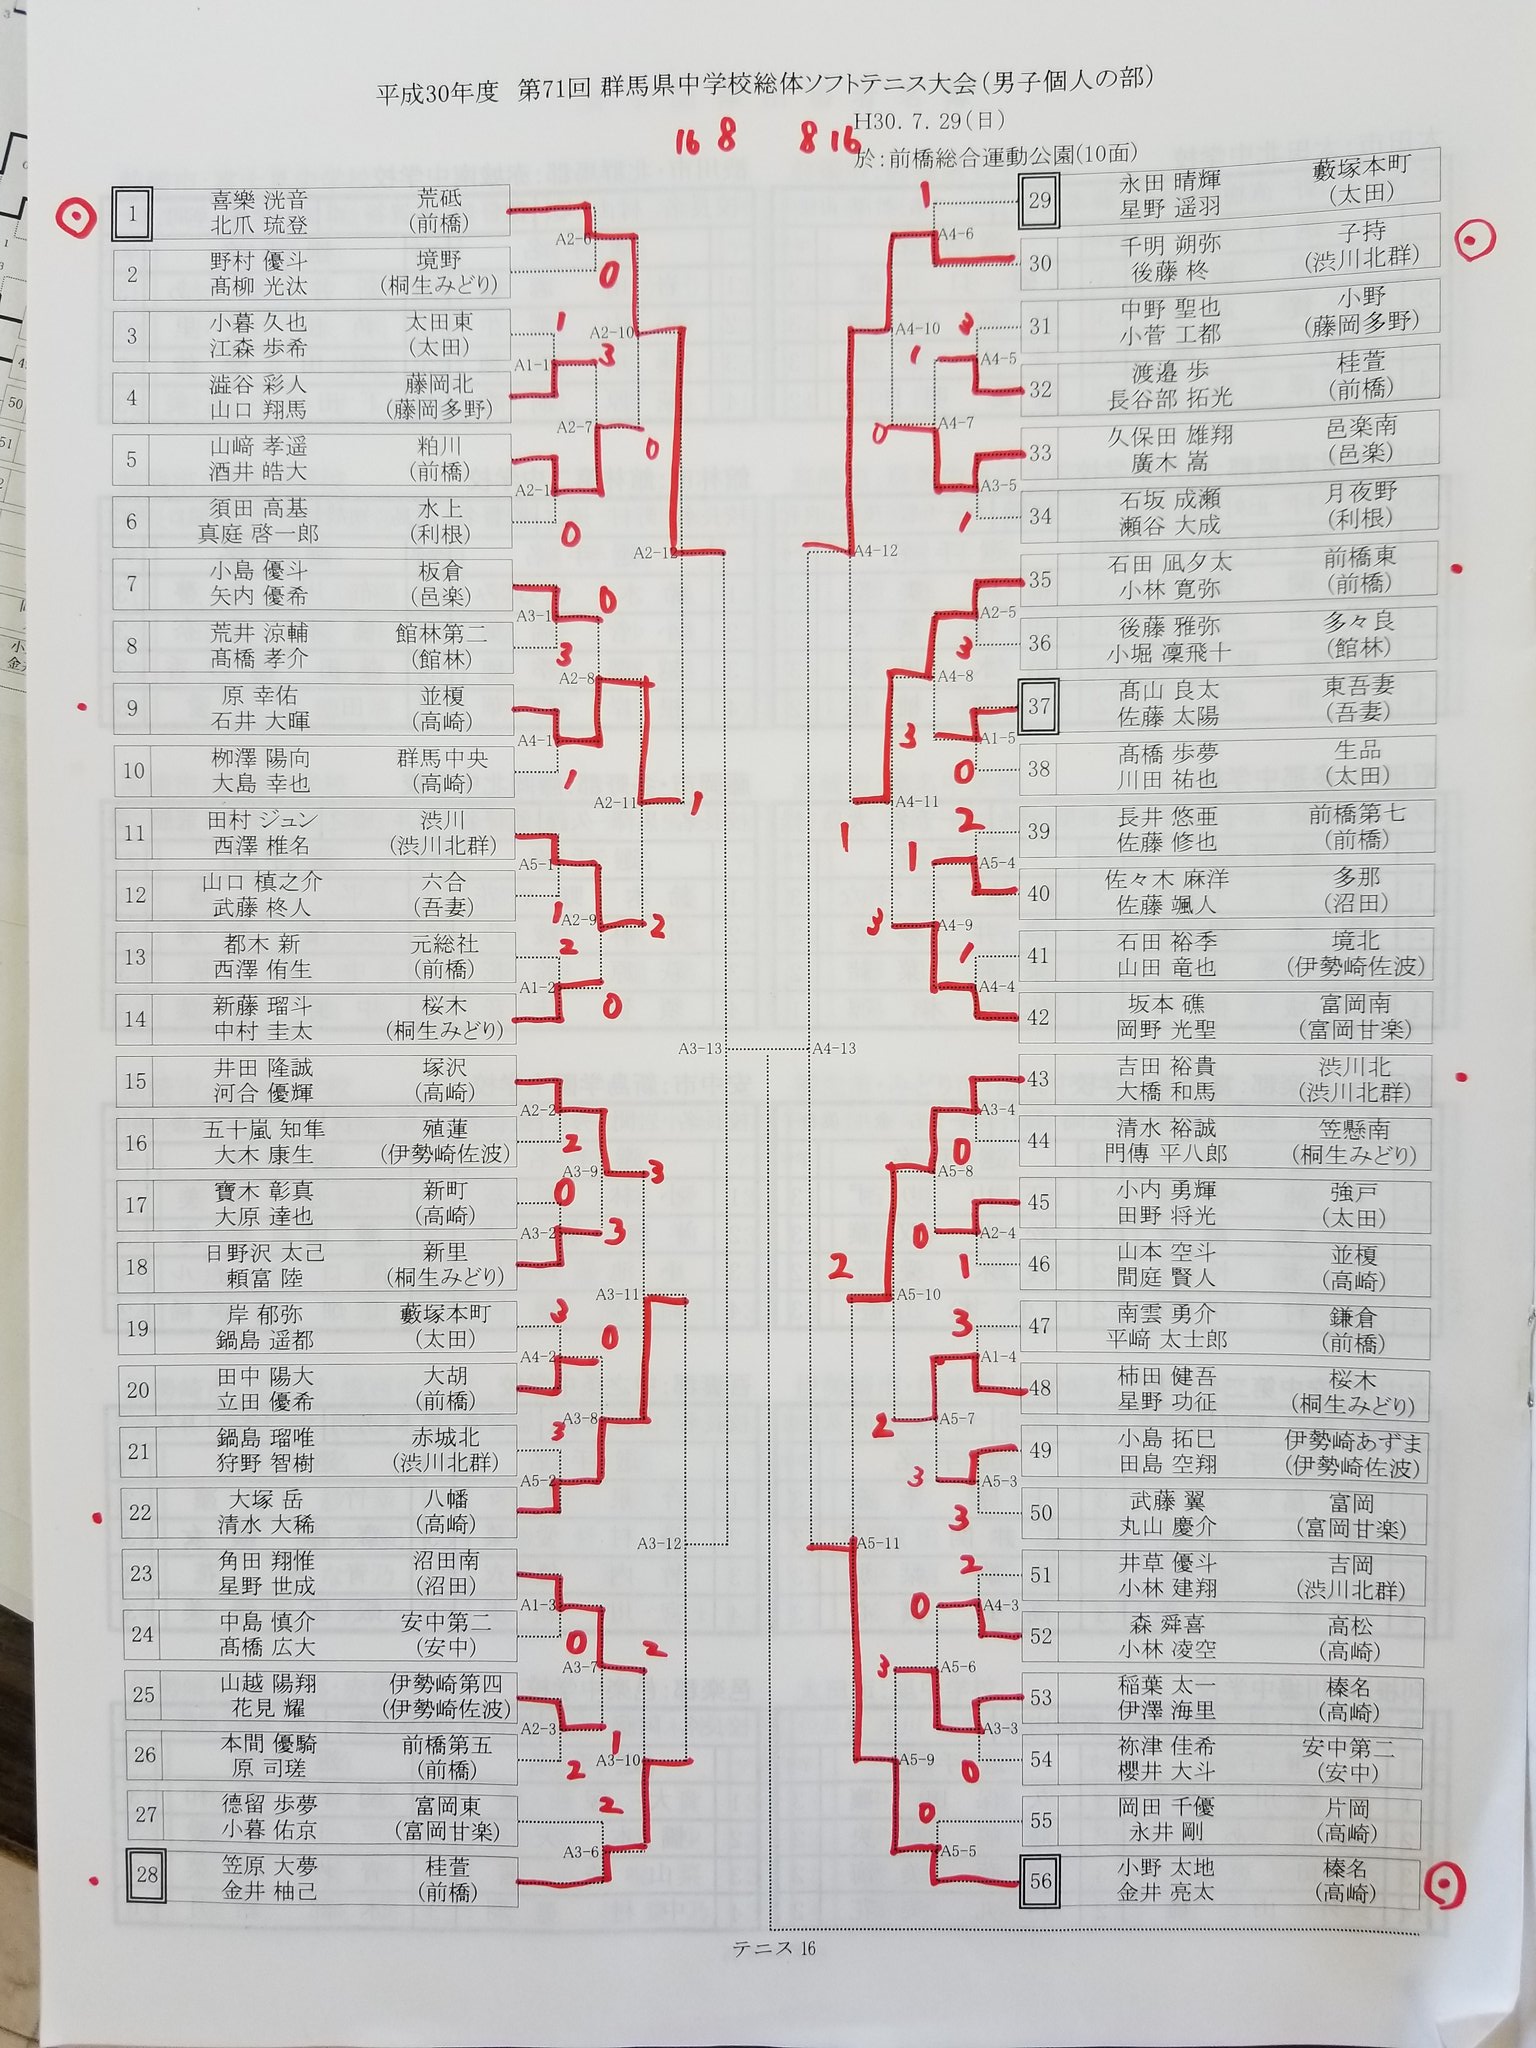 平成30年度 第71回 群馬県中学校総体ソフトテニス大会(男子個人の部)
H30.7.29(日)
於:前橋総合運動公園(10面)
16 8 8 16
1 喜樂 洸音 荒砥
北爪 琉登 (前橋)
2 野村 優斗 境野
髙柳 光汰 (桐生みどり)
3 小暮 久也 太田東
江森 歩希 (太田)
4 澁谷 彩人 藤岡北
山口 翔馬 (藤岡多野)
5 山﨑 孝遥 粕川
酒井 皓大 (前橋)
6 須田 高基 水上
真庭 啓一郎 (利根)
7 小島 優斗 板倉
矢内 優希 (邑楽)
8 荒井 涼輔 館林第二
髙橋 孝介 (館林)
9 原 幸佑 並榎
石井 大暉 (高崎)
10 栁澤 陽向 群馬中央
大島 幸也 (高崎)
11 田村 ジュン 渋川
西澤 椎名 (渋川北群)
12 山口 槙之介 六合
武藤 柊人 (吾妻)
13 都木 新 元総社
西澤 侑生 (前橋)
14 新藤 瑠斗 桜木
中村 圭太 (桐生みどり)
15 井田 隆誠 塚沢
河合 優輝 (高崎)
16 五十嵐 知隼 殖蓮
大木 康生 (伊勢崎佐波)
17 寶木 彰真 新町
大原 達也 (高崎)
18 日野沢 太己 新里
頼富 陸 (桐生みどり)
19 岸 郁弥 藪塚本町
鍋島 遥都 (太田)
20 田中 陽大 大胡
立田 優希 (前橋)
21 鍋島 瑠唯 赤城北
狩野 智樹 (渋川北群)
22 大塚 岳 八幡
清水 大稀 (高崎)
23 角田 翔惟 沼田南
星野 世成 (沼田)
24 中島 慎介 安中第二
髙橋 広大 (安中)
25 山越 陽翔 伊勢崎第四
花見 耀 (伊勢崎佐波)
26 本間 優騎 前橋第五
原 司瑳 (前橋)
27 德留 歩夢 富岡東
小暮 佑京 (富岡甘楽)
28 笠原 大夢 桂萱
金井 柚己 (前橋)
A2-6
0
1
A2-10
A1-1
3
A2-7
0
A2-1
0
A2-12
0
A3-1
3
A2-8
A4-1
1
A2-11
1
A5-1
1
A2-9
2
2
A1-2
0
A3-13
A2-2
2
A3-9
3
0
A3-2
3
A3-11
3
0
A4-2
A3-8
3
A5-2
A3-12
A1-3
0
2
A3-7
A2-3
1
A3-10
2
2
A3-6
29 永田 晴輝 藪塚本町
星野 遥羽 (太田)
30 千明 朔弥 子持
後藤 柊 (渋川北群)
31 中野 聖也 小野
小菅 工都 (藤岡多野)
32 渡邉 歩 桂萱
長谷部 拓光 (前橋)
33 久保田 雄翔 邑楽南
廣木 嵩 (邑楽)
34 石坂 成瀬 月夜野
瀬谷 大成 (利根)
35 石田 凪夕太 前橋東
小林 寛弥 (前橋)
36 後藤 雅弥 多々良
小堀 凜飛十 (館林)
37 髙山 良太 東吾妻
佐藤 太陽 (吾妻)
38 髙橋 歩夢 生品
川田 祐也 (太田)
39 長井 悠亜 前橋第七
佐藤 修也 (前橋)
40 佐々木 麻洋 多那
佐藤 颯人 (沼田)
41 石田 裕季 境北
山田 竜也 (伊勢崎佐波)
42 坂本 礁 富岡南
岡野 光聖 (富岡甘楽)
43 吉田 裕貴 渋川北
大橋 和馬 (渋川北群)
44 清水 裕誠 笠懸南
門傳 平八郎 (桐生みどり)
45 小内 勇輝 強戸
田野 将光 (太田)
46 山本 空斗 並榎
間庭 賢人 (高崎)
47 南雲 勇介 鎌倉
平﨑 太士郎 (前橋)
48 柿田 健吾 桜木
星野 功征 (桐生みどり)
49 小島 拓巳 伊勢崎あずま
田島 空翔 (伊勢崎佐波)
50 武藤 翼 富岡
丸山 慶介 (富岡甘楽)
51 井草 優斗 吉岡
小林 建翔 (渋川北群)
52 森 舜喜 高松
小林 凌空 (高崎)
53 稲葉 太一 榛名
伊澤 海里 (高崎)
54 祢津 佳希 安中第二
櫻井 大斗 (安中)
55 岡田 千優 片岡
永井 剛 (高崎)
56 小野 太地 榛名
金井 亮太 (高崎)
1
A4-6
A4-10
3
1
A4-5
0
A4-7
A3-5
1
A4-12
A2-5
3
A4-8
3
A1-5
0
A4-11
1
2
1
A5-4
3
A4-9
1
A4-4
A4-13
A3-4
0
A5-8
0
A2-4
1
2
A5-10
3
A1-4
2
A5-7
3
A5-3
3
A5-11
2
0
A4-3
3
A5-6
A3-3
0
A5-9
0
A5-5
テニス 16